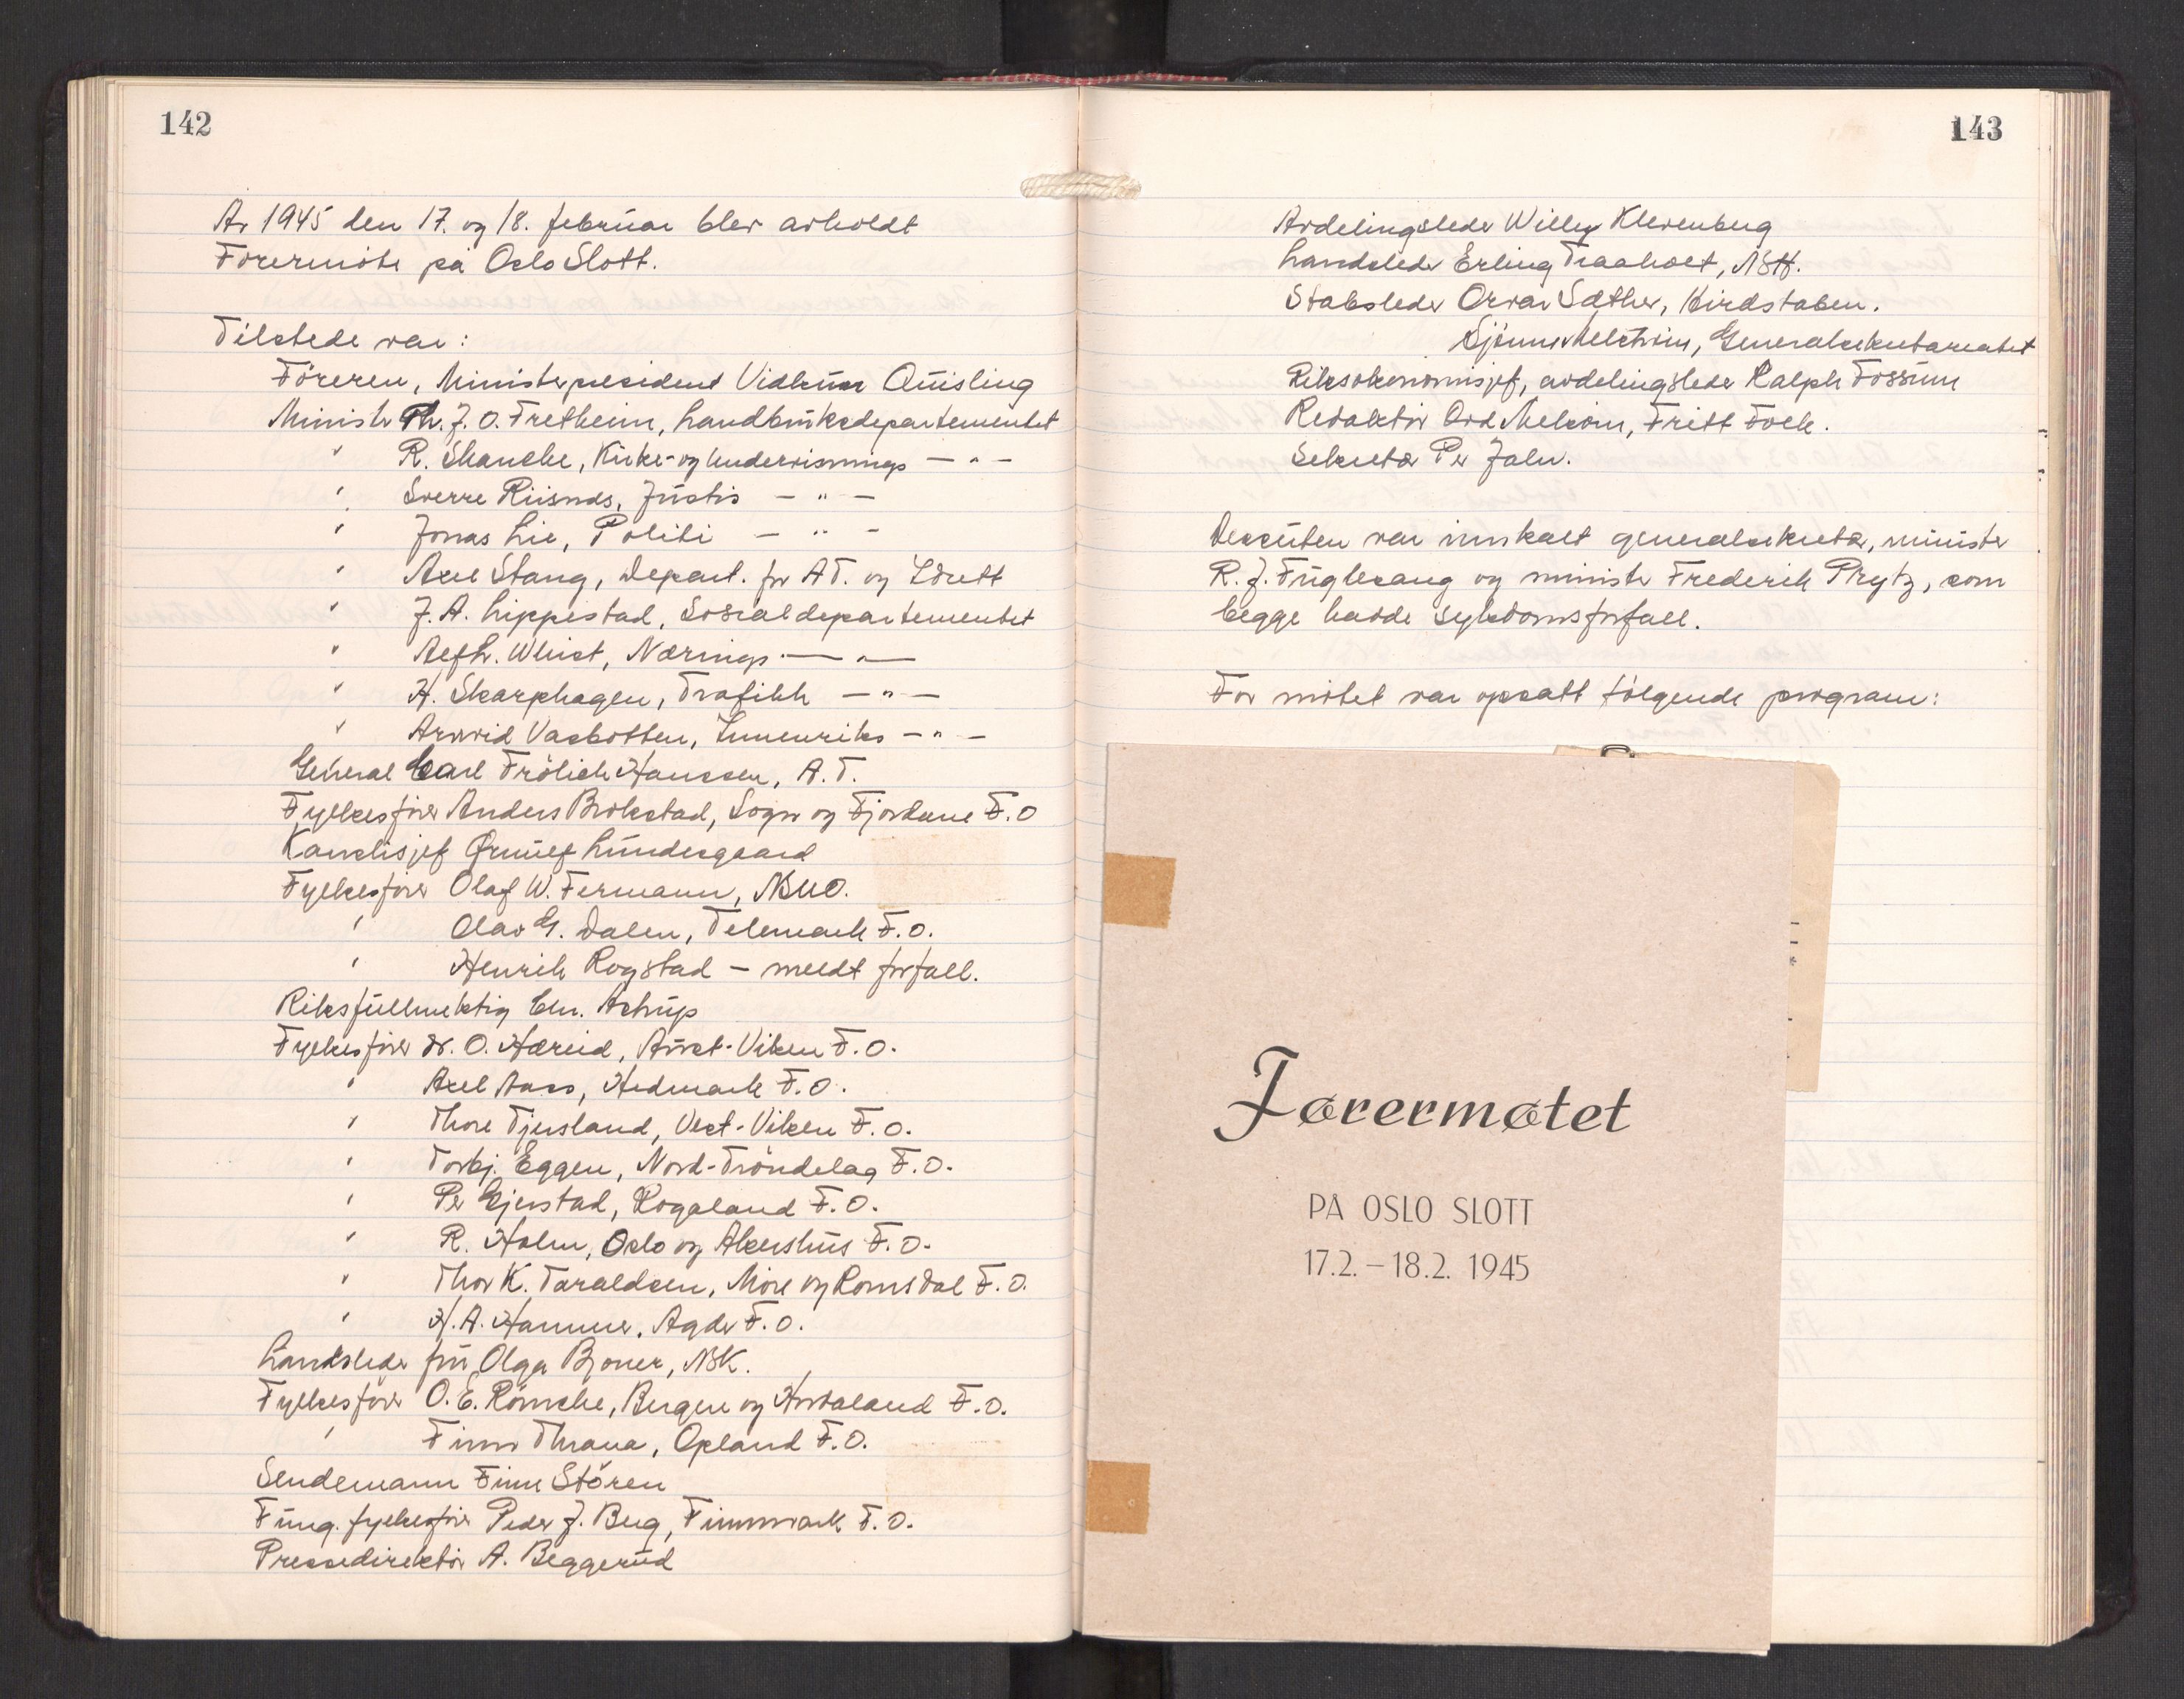 142
År 1945 den 17. og 18. februar blev avholdt
Førermøte på Oslo Slott.
Tilstede var:
Föreren, Ministerpresident Vidkun Quisling
Minister Th. J. O. Fretheim, Landbruksdepartementet
" R. Skancke, Kirke- og Undervisnings — " —
" Sverre Riisnæs, Justis — " —
" Jonas Lie, Politi — " —
" Axel Stang, Depart. for AT. og Idrett
" J. A. Lippestad, Sosialdepartementet
" Alf L. Whist, Nærings — " —
" H. Skarphagen, Trafikk — " —
" Arnvid Vasbotten, Innenriks — " —
General Carl Frölich Hanssen, A.T.
Fylkesfører Anders Brokstad, Sogn og Fjordane F.O
Kanslisjef Ørnulf Lundesgaard
Fylkesfører Olaf W. Fermann, NSUO.
" Olav G. Dalen, Telemark F.O.
" Henrik Rogstad — meldt forfall.
Riksfullmektig Chr. Astrup
Fylkesfører dr. O. Hæreid, Aust-Viken F.O.
" Axel Aass, Hedmark F.O.
" Thore Tjersland, Vest-Viken F.O.
" Torbj. Eggen, Nord-Tröndelag F.O.
" Per Gjerstad, Rogaland F.O.
" R. Holm, Oslo og Akershus F.O.
" Thor K. Taraldsen, Møre og Romsdal F.O.
" H. A. Hammer, Agder F.O.
Landsleder fru Olga Bjoner, NSK.
Fylkesfører O. E. Röncke, Bergen og Hordaland F.O.
" Finn Thrana, Opland F.O.
Sendemann Finn Stören
Fung. fylkesfører Peder J. Berg, Finnmark F.O.
Pressedirektör A. Beggerud
143
Avdelingsleder Willy Klevenberg
Landsleder Erling Traaholt, NSH.
Stabsleder Orvar Sæther, Hirdstaben.
Generalsekretareatet
Riksøkonomisjef, avdelingsleder Ralph Fossum
Redaktör Odd Melsom, Fritt Folk.
Sekretær Per Jahr.
Dessuten var innkalt generalsekretær, minister
R. J. Fuglesang og minister Frederik Prytz, som
begge hadde sykdomsforfall.
For møtet var opsatt følgende program:
Førermøtet
PÅ OSLO SLOTT
17.2. – 18.2. 1945